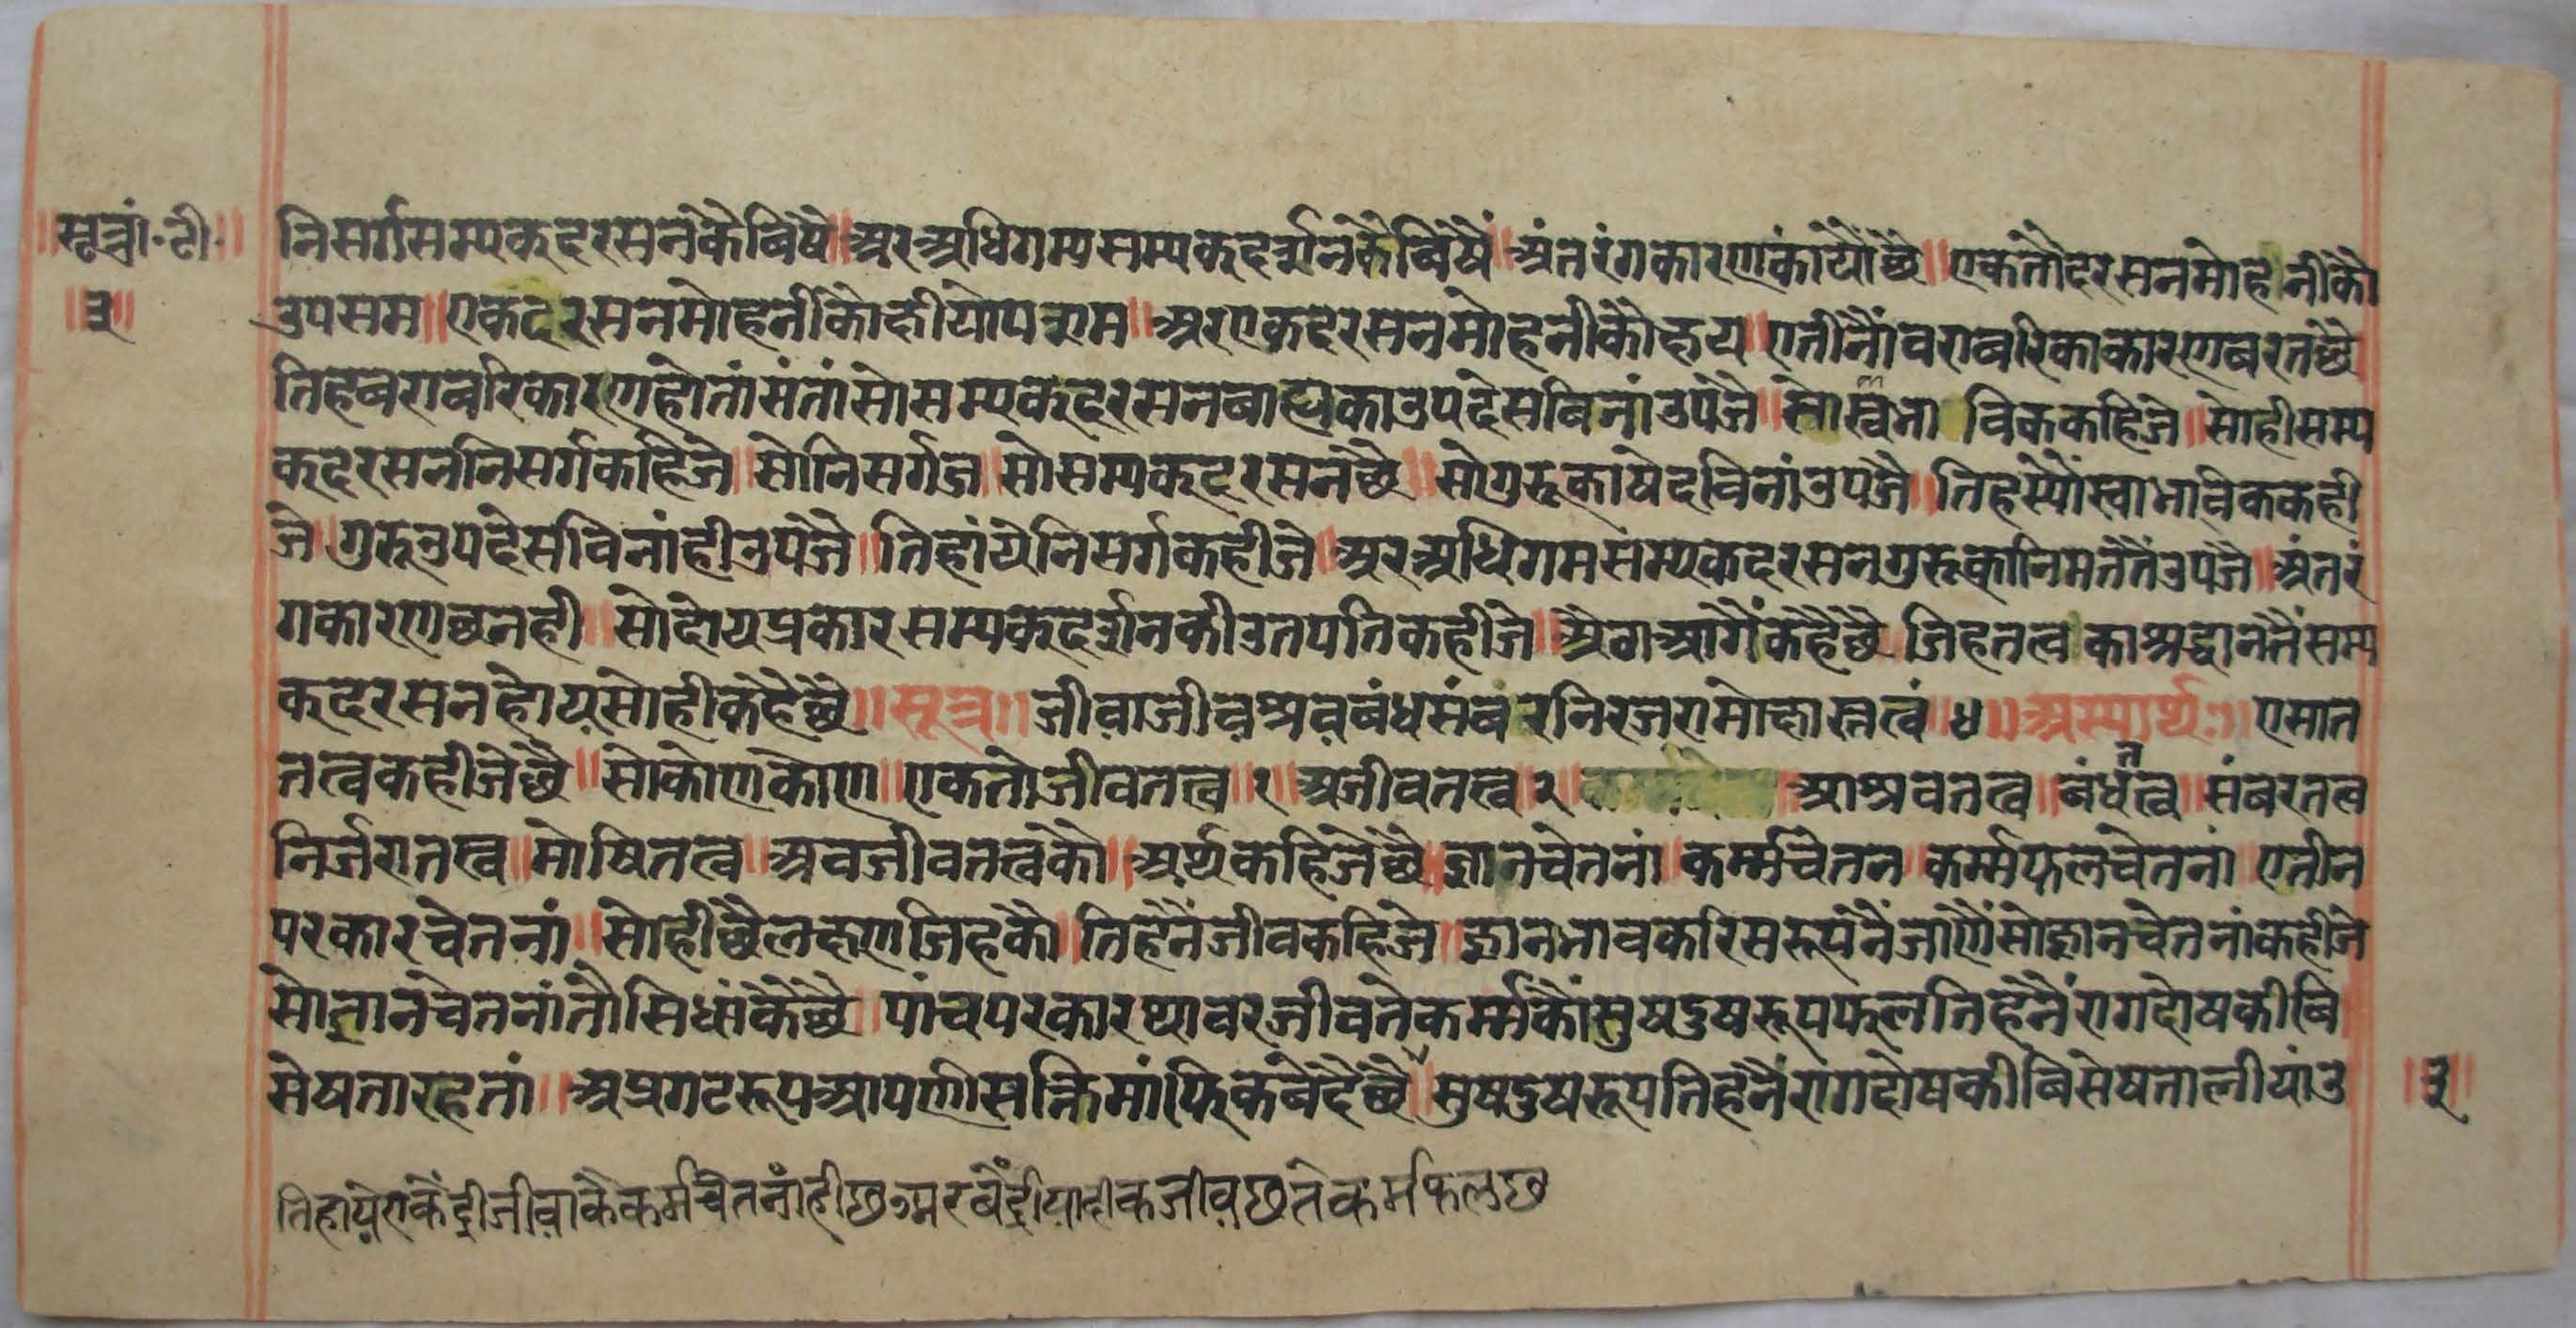 ॥सूत्रां॰टी॰॥
॥३॥
निसर्गसम्यक्दरसनकेबिषे॥अरअधिगम्यसम्यक्दर्शनकैबिषैं॥अंतरंगकारणकांयोंछै॥एकतौदरसनमोहनीकौ
उपसम॥एकदरसनमोहनीकौक्षीयोपशम॥अरएकदरसनमोहनीकौक्षय॥एतीनौंवराबरिकाकारणबरतछै
तिहबराबरिकारणहोतांसंतांसोसम्यक्दरसनबाह्यकाउपदेसबिनांउपजै॥सोस्वभाविककहिजे॥सोहीसम्य
क्दरसननिसर्गकहिजे॥सोनिसर्गज॥सोसम्यक्दरसनछै॥सोगुरूकाषेदविनांउपजै॥तिहस्यौंस्वाभाविककही
जे॥गुरूउपदेसविनांहीउपजे॥तिहांयेनिसर्गकहीजे॥अरअधिगमसम्यकदरसनगुरूकानिमततैंउपजै॥अंतरं
गकारणछनही॥सोदोयप्रकारसम्यक्दर्शनकीउतपतिकहीजे॥अैठाआगैंकहैछै॥जिहतत्वकाश्रद्धानतैंसम्य
क्दरसनहोय़सोहीकहैछै॥सूत्र॥जीव़ाजीव़श्रव़बंधसंबरनिरजरामोक्षास्तत्वं॥४॥अस्यार्थ॥एसात
तत्वकहीजेछै॥सोकोणकोण॥एकतोजीवतत्व॥१॥अजीवतत्व॥२॥आश्रवतत्व॥बंधतत्व॥संबरतत्व
निर्जरातत्व॥मोषितत्व॥अवजीवतत्वको॥अर्थकहिजेछै॥ज्ञानचेतनां॥कर्म्मचेतन॥कर्म्मफलचेतनां॥एतीन
परकारचेतनां॥सोहीछैलक्षणजिहकौ॥तिहनैंजीवकहिजे॥ज्ञानभावकरिसरूपनैंजाणैंसोज्ञानचेतनांकहीजे
सोज्ञानचेतनांतौसिधांकैछै॥पांचपरकारथावरजीवतेकर्म्मकौंसुषदुषरूपफलतिहनैंरागदोषकीबि
सेषतारहतां॥अप्रगटरूपआपणीसक्तिमांफिकबेदैछै॥सुषदुषरूपतिहनैंरागदोषकीबिसेषतालीयांउ
॥३॥
तिहाय़ेएकेंद्रीजीव़ाकैकर्मचेतनांहीछअरबेंद्रीय़ादीकजीव़छतेकर्मफलछ